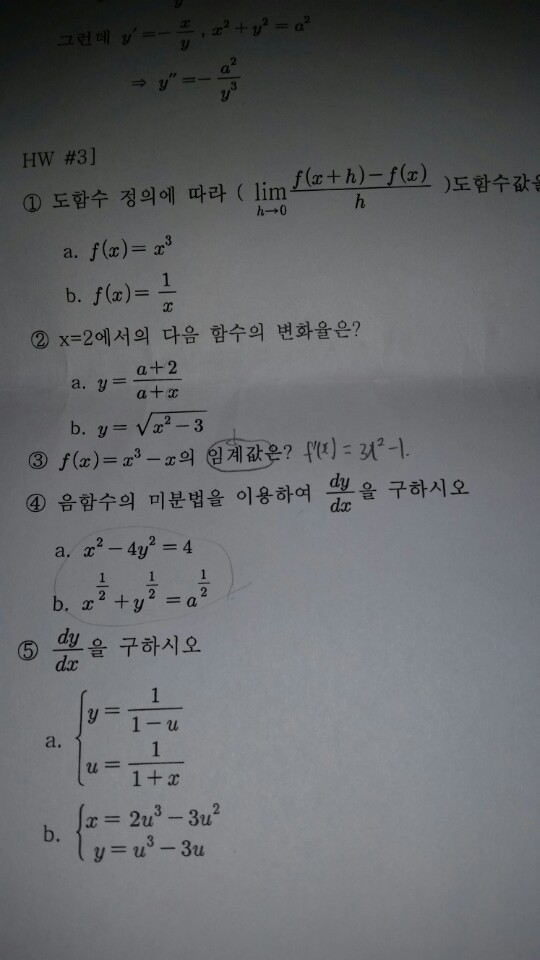 그런데 y′=−x/y , x²+y²=a²
⇒ y″=−a²/y³
HW #3]
① 도함수 정의에 따라 ( lim_{h→0} (f(x+h)−f(x))/h )도함수값을
a. f(x)= x³
b. f(x)= 1/x
② x=2에서의 다음 함수의 변화율은?
a. y= (a+2)/(a+x)
b. y= √(x²−3)
③ f(x)=x³−x의 임계값은? f′(x) = 3x²−1.
④ 음함수의 미분법을 이용하여 dy/dx 을 구하시오
a. x²−4y²=4
b. x^(1/2)+y^(1/2)=a^(1/2)
⑤ dy/dx 을 구하시오
a. { y= 1/(1−u)
u= 1/(1+x)
b. { x= 2u³−3u²
y=u³−3u